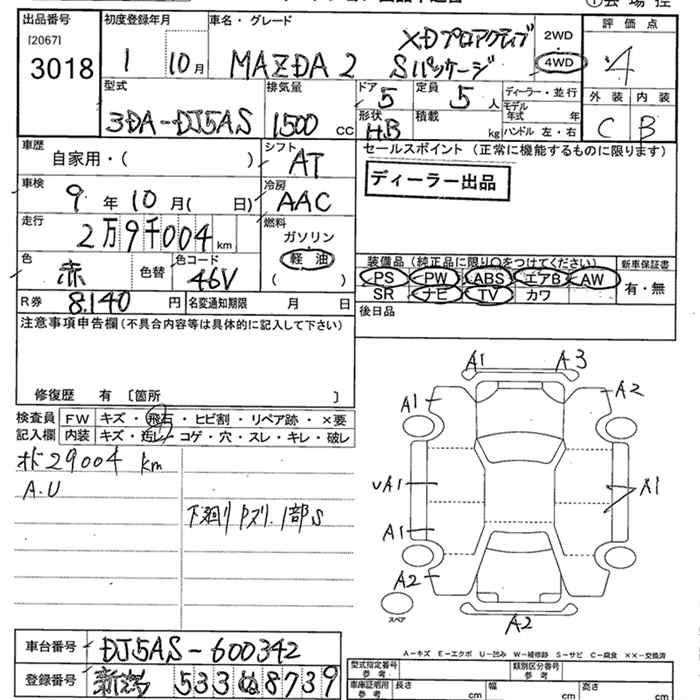 出品番号
[2067]
3018
初度登録年月
1 10月
車名・グレード
MAZDA 2
XDプロアクティブ
Sパッケージ
2WD
4WD
評価点
4
外装 内装
C B
型式
3DA-DJ5AS
排気量
1500 CC
ドア
5
定員
5 人
形状
HB
積載
kg
ディーラー・並行
モデル年式 年
ハンドル 左・右
車歴
自家用・( )
シフト
AT
車検
9 年 10 月( 日)
冷房
AAC
走行
2万9千004 km
燃料
ガソリン
軽油
( )
色
赤 色替
色コード
46V
R券 8.140 円
名変通知期限 月 日
セールスポイント(正常に機能するものに限ります)
ディーラー出品
装備品(純正品に限り○をつけてください)
PS PW ABS エアB AW
SR ナビ TV カワ
新車保証書
有・無
後日品
注意事項申告欄(不具合内容等は具体的に記入して下さい)
修復歴 有 〔箇所 〕
検査員記入欄
FW キズ・飛石・ヒビ割・リペア跡・×要
内装 キズ・汚レ・コゲ・穴・スレ・キレ・破レ
オド29004 km
A.U
下廻りサズリ.1部S
A1 A3
A1 A2
UA1 A1
A1
A2
A2
スペア
A-キズ E-エクボ U-凹み W-補修跡 S-サビ C-腐食 ××-交換済
車台番号
DJ5AS-600342
登録番号
新潟 533 ぬ 8739
型式指定番号 参考
類別区分番号 参考
車庫証明用 参考
長さ cm
幅 cm
高さ cm